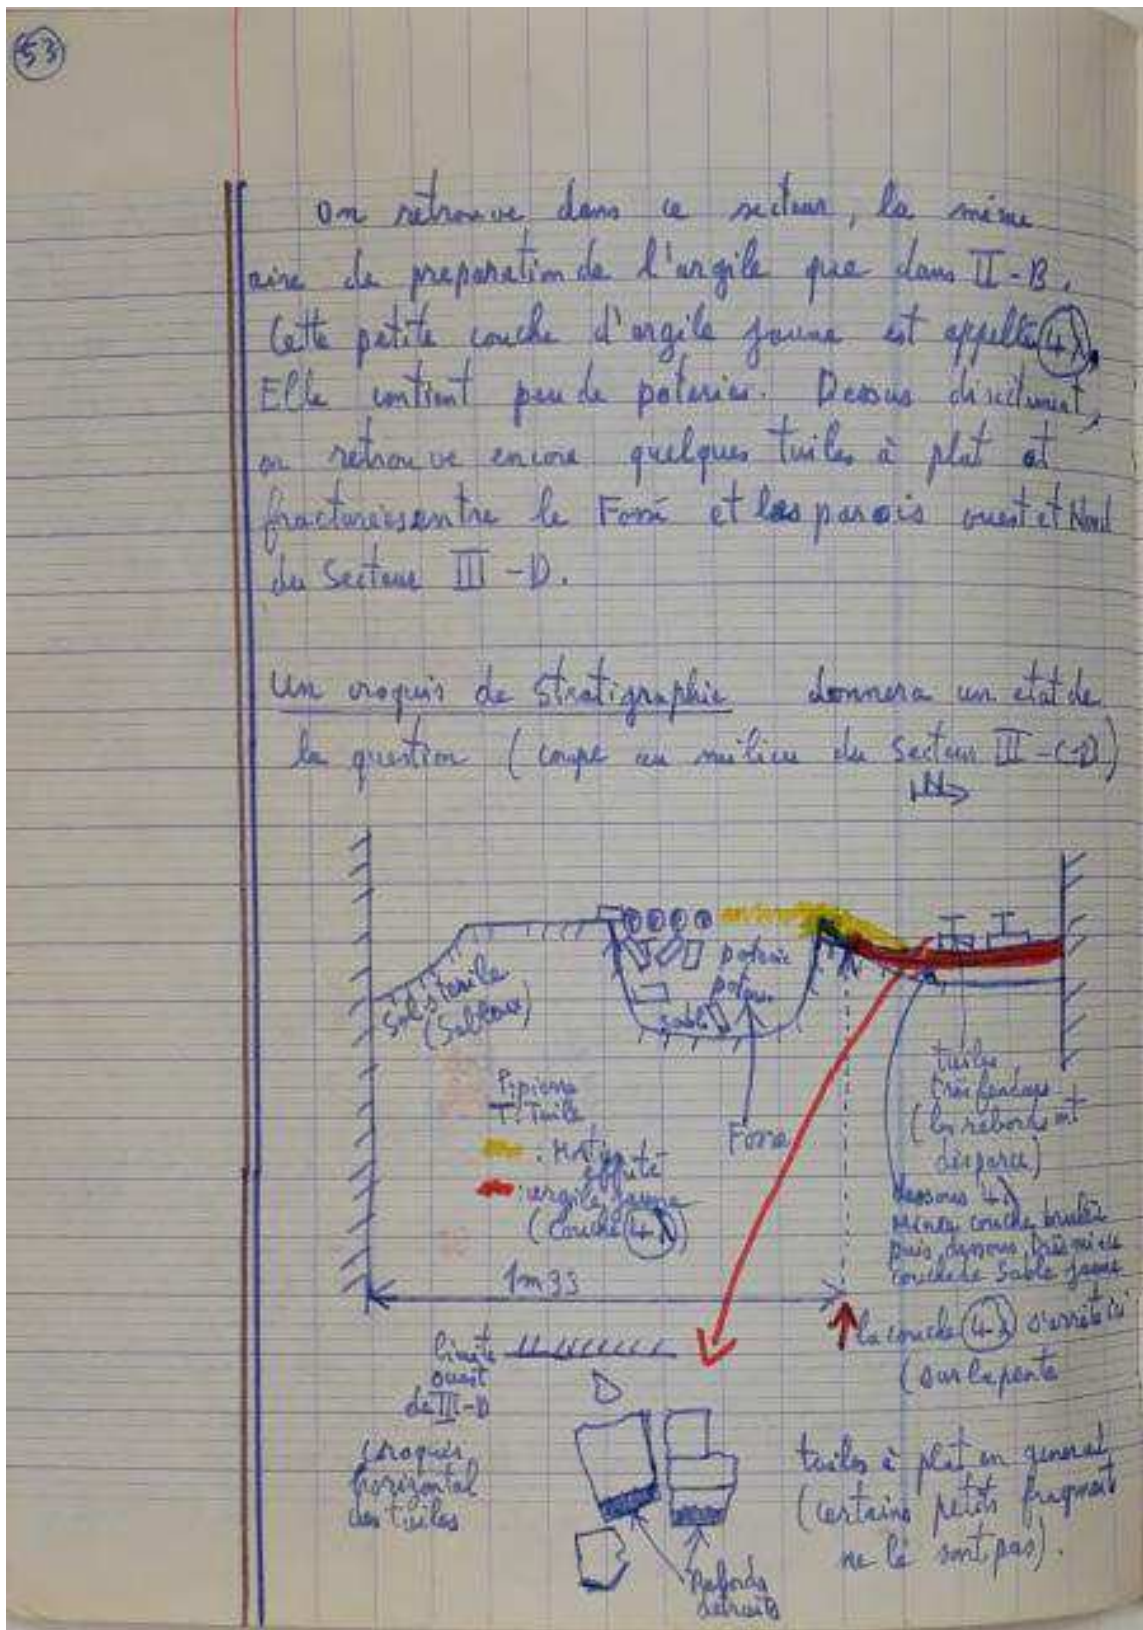 53
On retrouve dans ce secteur, la même
aire de preparation de l'argile que dans II-B.
Cette petite couche d'argile jaune est appellée 4λ.
Elle contient peu de poteries. Dessus directement,
on retrouve encore quelques tuiles à plat et
fracturées entre le Fossé et les parois ouest et Nord
du Secteur III-D.
Un croquis de Stratigraphie donnera un état de
la question (coupe au milieu du Secteur III-C-D)
N
T T
Sol sterile
(Sableux)
poterie
poteau
sable
P: pierre
T: Tuile
Fossé
tuiles
très
(les rebords ont
disparu)
effrité
: argile jaune
(Couche 4λ)
dessous 4λ
mince couche brulée
puis, dessous, très mince
couche de Sable jaune
1m33
la couche 4λ s'arrête ici
(sur la pente
limite
ouest
de III-D
croquis
horizontal
des tuiles
tuiles à plat en general
(certains petits fragments
ne le sont pas).
Rebords
detruits